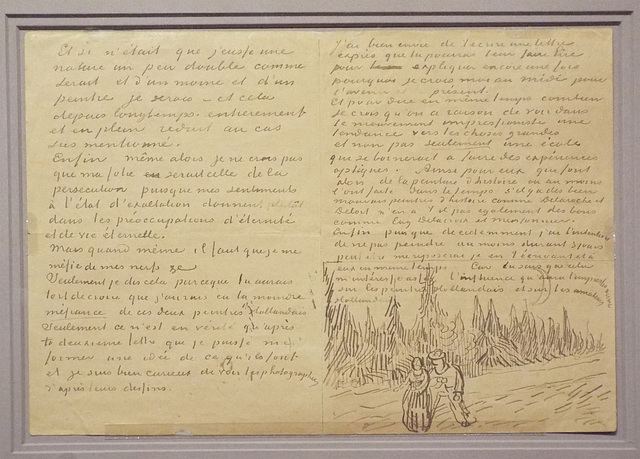 Et si n'était que j'eusse une
nature un peu double comme
serait et d'un moine et d'un
peintre je serais – et cela
depuis longtemps entièrement
et en plein réduit au cas
sus mentionné.
Enfin même alors je ne crois pas
que ma folie serait celle de la
persécution puisque mes sentiments
à l'état d'exaltation donnent
dans les préoccupations d'éternité
et de vie éternelle.
Mais quand même il faut que je me
méfie de mes nerfs
Seulement je dis cela parceque tu aurais
tort de croire que j'aurais eu la moindre
méfiance de ces deux peintres Hollandais
Seulement ce n'est en vérité qu'après
ta deuxième lettre que je puisse me
former une idée de ce qu'ils font
et je suis bien curieux de voir les photographies
d'après leurs dessins.
J'ai bien envie de t'écrire une lettre
exprès que tu pourras leur faire lire
pour expliquer encore une fois
pourquoi je crois moi au midi pour
l'avenir et présent.
Et pour dire en même temps combien
je crois qu'on a raison de voir dans
le mouvement impressionniste une
tendance vers les choses grandes
et non pas seulement une école
qui se bornerait à faire des expériences
optiques. Ainsi pour eux qui font
alors de la peinture d'histoire ou au moins
l'ont faite dans le temps s'il y a des bien
mauvais peintres d'histoire comme Delaroche et
Delort n'en a t'il pas également des bons
comme Eug Delacroix et Meissonier.
Enfin puisque décidemment j'ai l'intention
de ne pas peindre au moins durant 3 jours
peut être me reposerai je en t'écrivant et à
eux en même temps. Car tu sais que cela
m'intéresse assez l'influence qu'aura l'impressionnisme
sur les peintres Hollandais et sur les amateurs
Hollandais